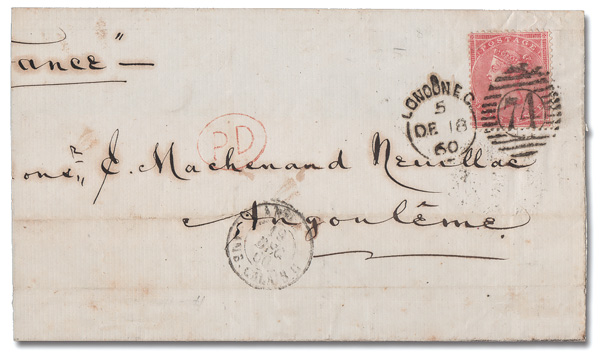 ance" —
POSTAGE
LONDON E.C.
5
DE 18
60
74
PD
Monsr E. Machenaud Neuillac
Angoulême.